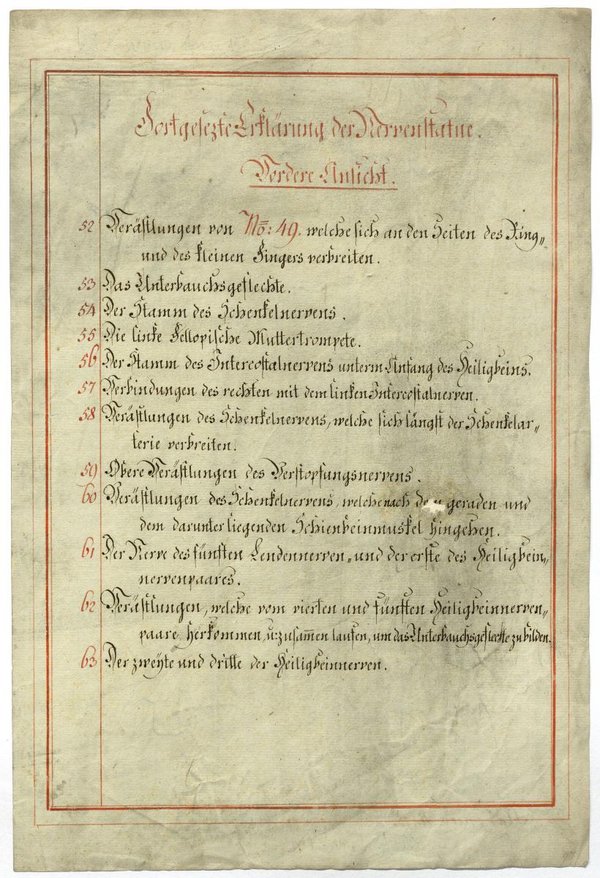 Fortgesezte Erklärung der Nervenstatue.
Vordere Ansicht.
52 Verästlungen von No: 49. welche sich an den Seiten des Ring„
und des kleinen Fingers verbreiten.
53 Das Unterbauchsgeflechte.
54 Der Stamm des Schenkelnervens.
55 Die linke Fellopische Muttertrompete.
56 Der Stamm des Intercostalnervens unterm Anfang des Heiligbeins.
57 Verbindungen des rechten mit dem linken Intercostalnerven.
58 Verästlungen des Schenkelnervens, welche sich längst der Schenkelar„
terie verbreiten.
59 Obere Verästlungen des Verstopfungsnervens.
60 Verästlungen des Schenkelnervens, welche nach dem geraden und
dem darunterliegenden Schienbeinmuskel hingehen.
61 Der Nerve des fünften Lendennerven„ und der erste des Heiligbein„
nervenpaares.
62 Verästlungen, welche vom vierten und fünften Heiligbeinnerven„
paare herkommen, u: zusam̄en laufen, um das Unterbauchsgeflechte zu bilden.
63 Der zweyte und dritte der Heiligbeinnerven.